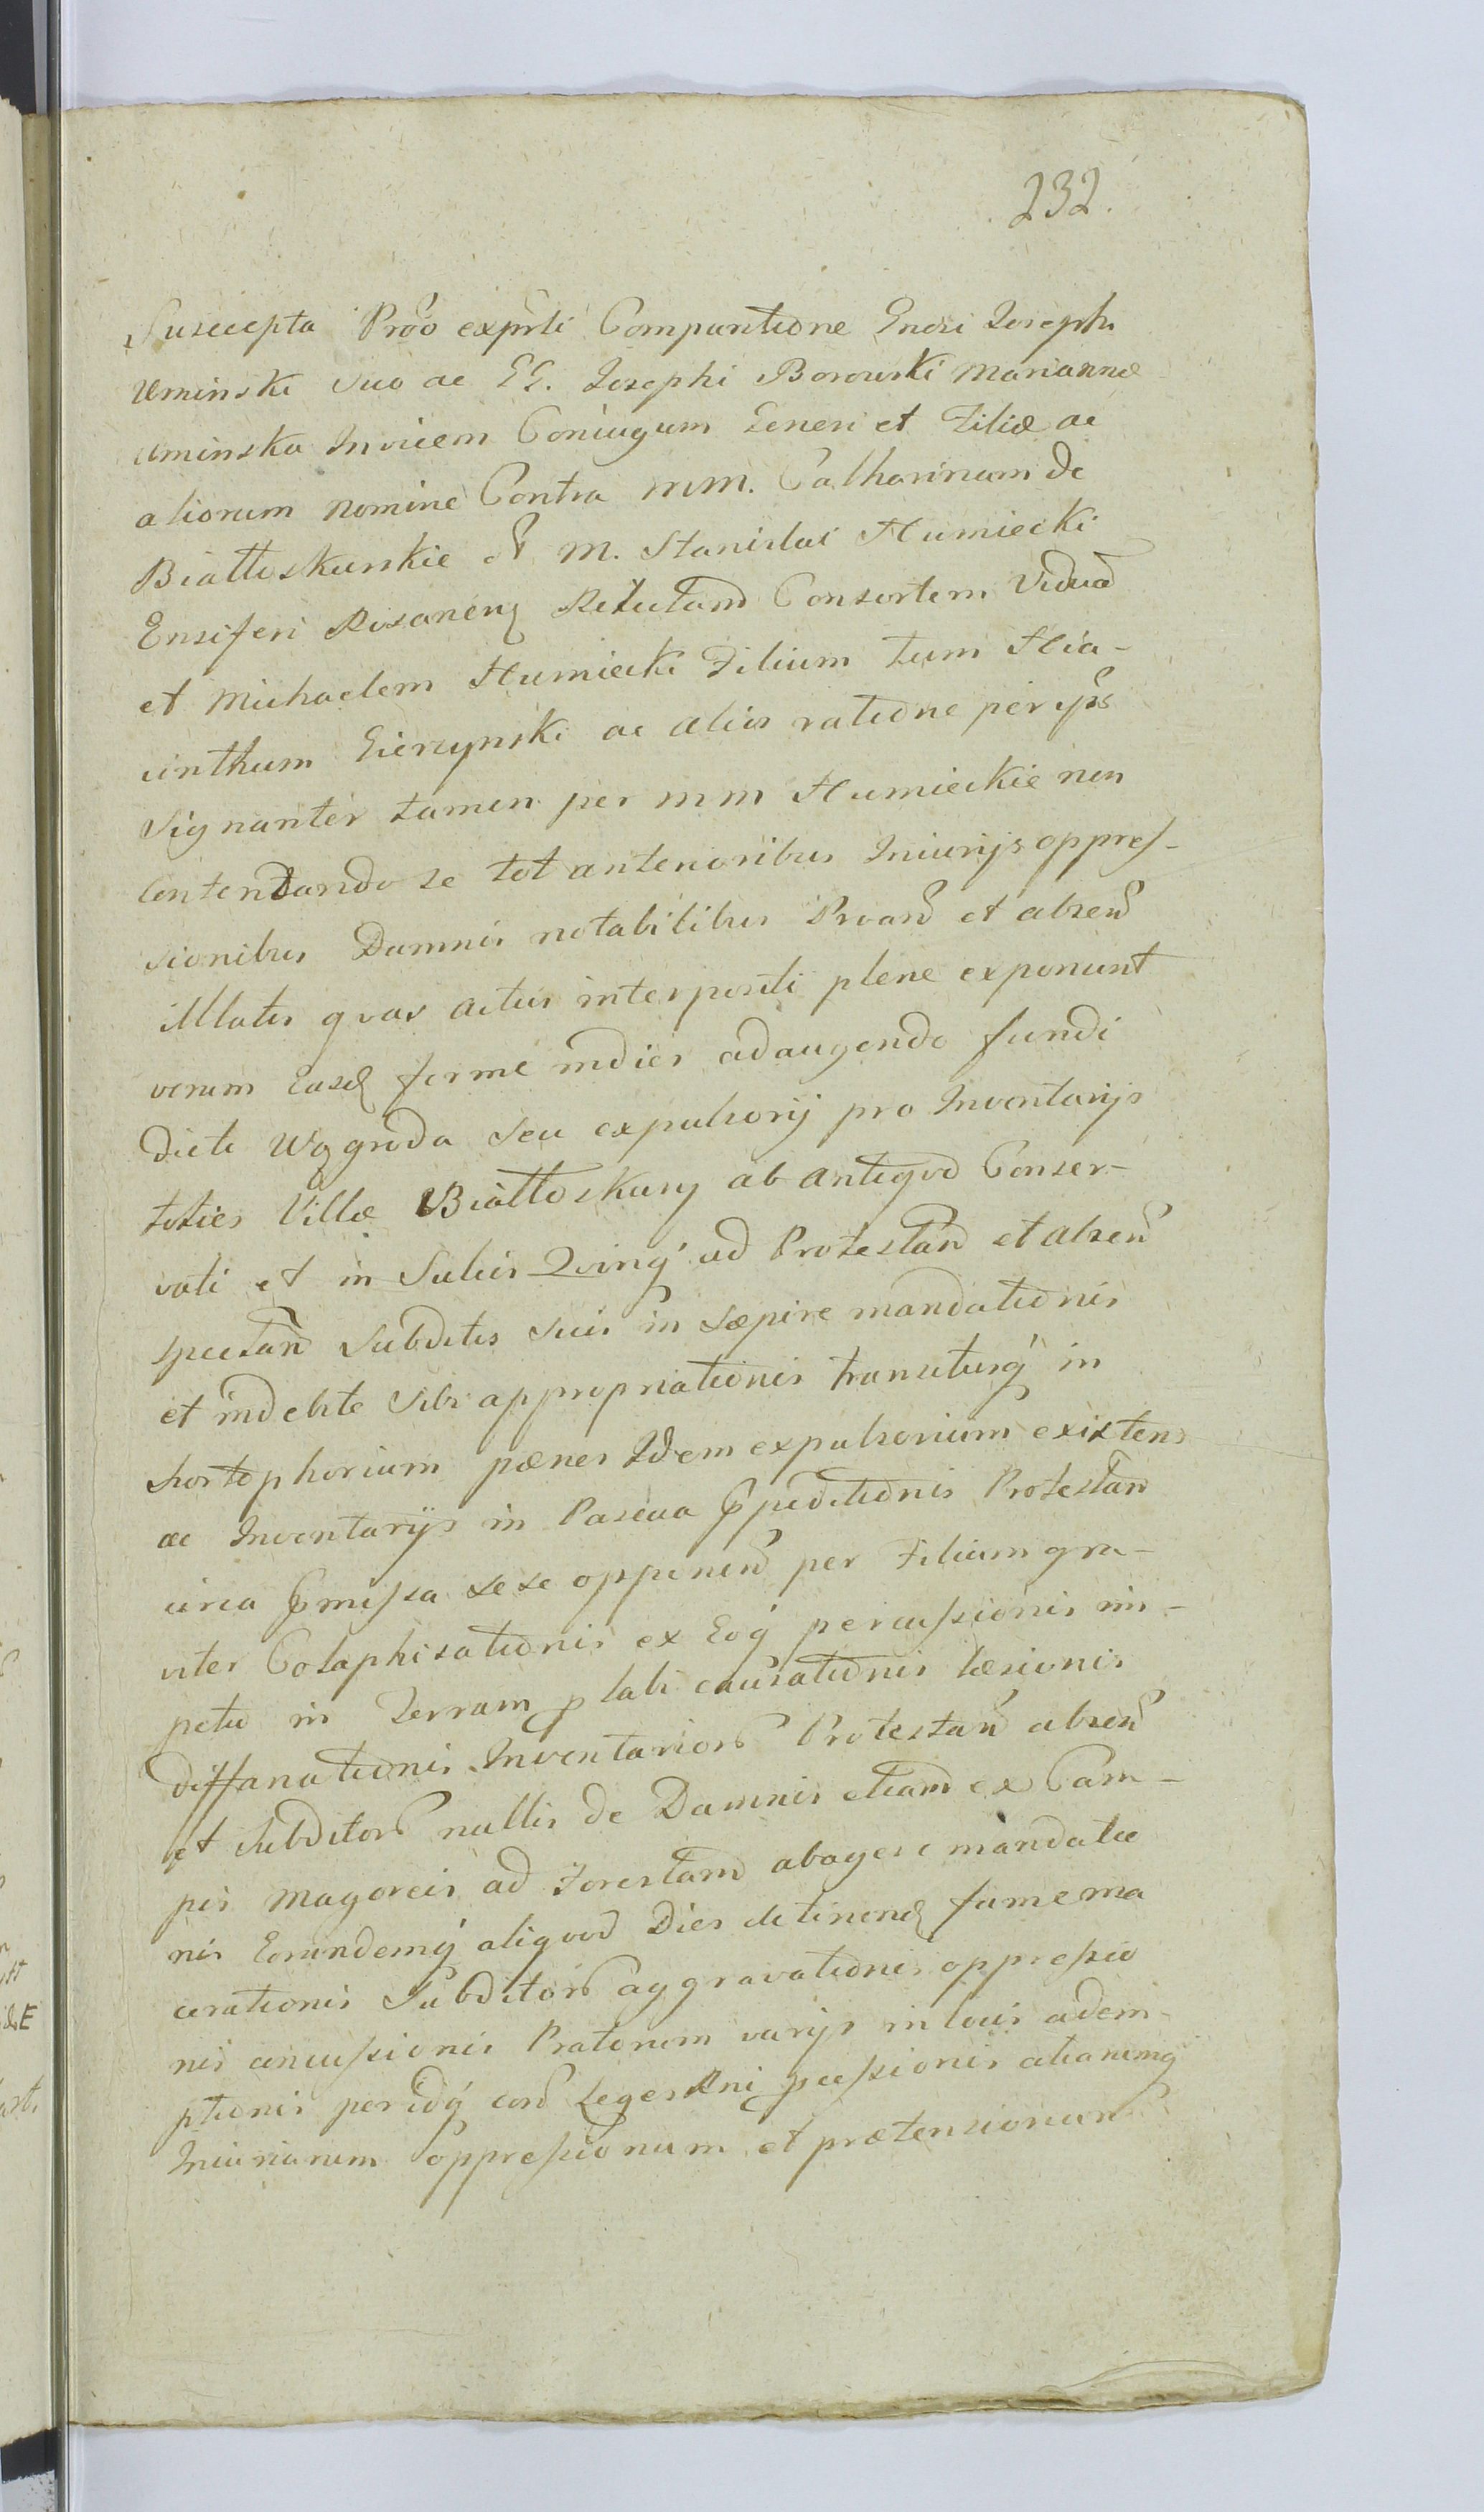 232.
Suscepta Proõ exprli Comparitione Gnosi Joseph
Uminski suo ac GG. Josephi Borowski Mariannæ
Uminska Invicem Coniugum Generi et Filiæ ac
aliorum nomine Contra MM. Catharinam de
Białłoskurskie M. Stanislai Humiecki
Ensiferi Rosanenq Relictam Consortem Viduã
et Michaelem Humiecki Filium tum Hia-
cinthum Gierzynski ac alios ratione per ipõs
signanter tamen per MM Humieckie non
Contentando se tot anterioribus Iniurijs oppres-
sionibus Damnis notabilibus Proañ et absen̄
illatis quas actus interpositi plene exponunt
verum easdq ferme indies adaugendo fundi
dicti Wygroda seu expulsorij pro Inventarijs
toties Villæ Białłoskury ab antiquo Conser-
vati et in Suliis Ving ad Protestan̄ et absen̄
spectan̄ Subditis suis in sæpire mandationis
et indebite sibi appropriationis transitusq́ in
hortephorium pænes Idem expulsorium existens
ac Inventarijs in Pascua expeditionis Protestan̄
circa pmissa sese opponen̄ per Filium gra-
viter Colaphisationis ex Eoq́ percussionis im-
petu in Terram plabi causationis læsionis
diffanationis Inventarior̃ Protestan̄ absen̄
et Subditor̃ nullis de Damnis etiam ex Cam-
pis Magoreis ad Forestam abagere mandatio
nis Eorundemq́ aliquod Dies detinendq fame ma
cerationis Subditor̃ aggravationis oppressio
nis concussionis Pratorum varijs in locis adem-
ptionis per idq́ cor̃ Leges Rni pcessionis aliarumq́
Iniuriarum oppressionum et prætensionum